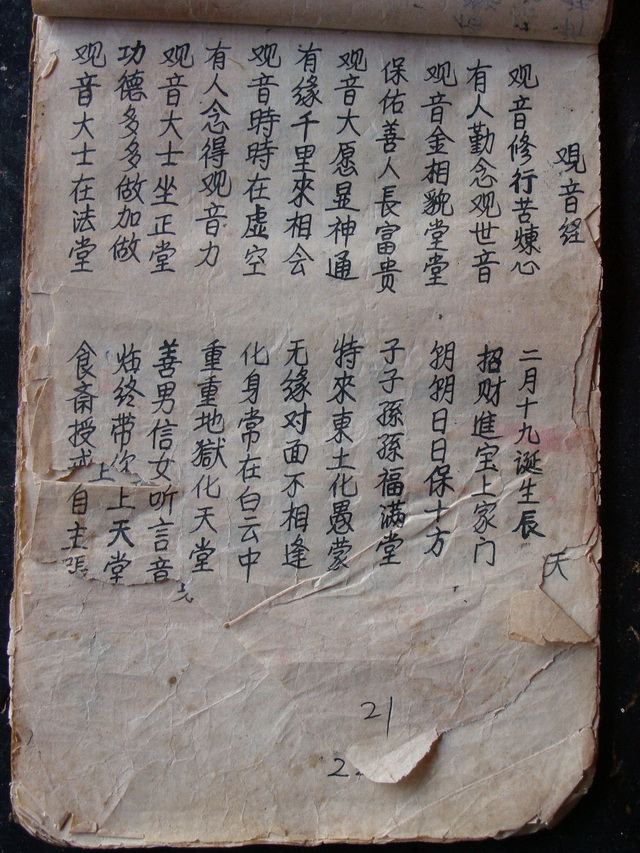 观音经
观音修行苦煉心 二月十九诞生辰
有人勤念观世音 招财進宝上家门
观音金相貌堂堂 朔朔日日保十方
保佑善人長富贵 子子孫孫福满堂
观音大愿显神通 特來東土化愚蒙
有缘千里來相会 无缘对面不相逢
观音時時在虚空 化身常在白云中
有人念得观音力 重重地獄化天堂
观音大士坐正堂 善男信女听言音
功德多多做加做 临终带你上天堂
观音大士在法堂 食斋授戒自主張
上
天
21
2